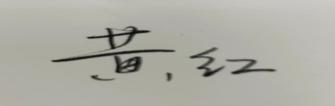 黄,红